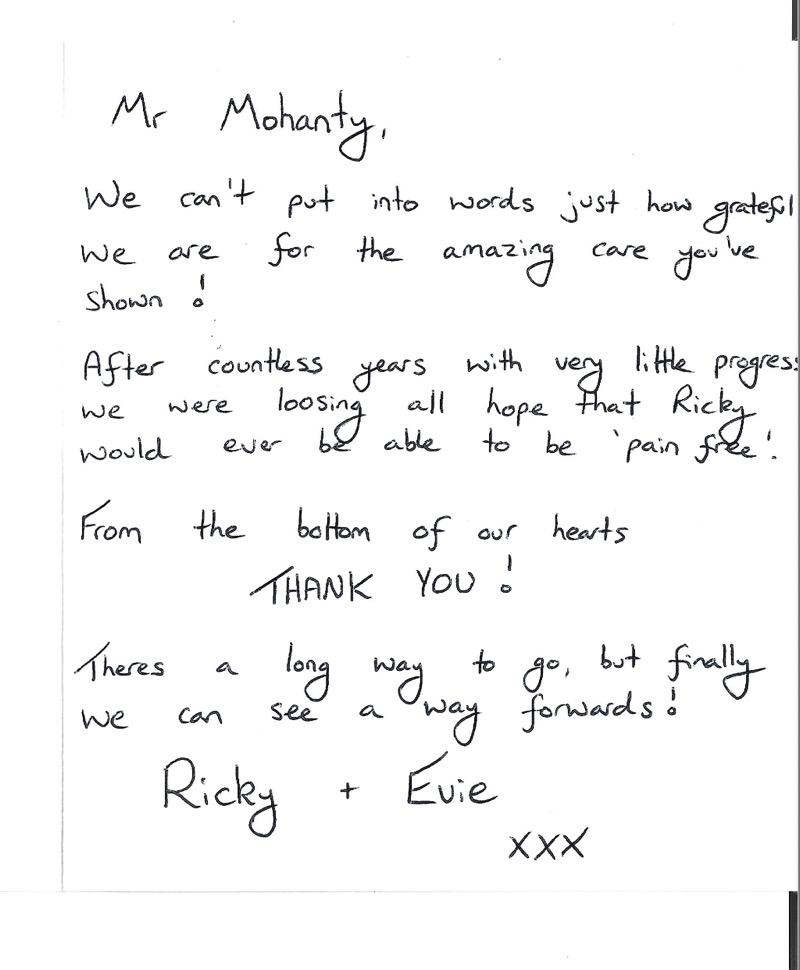 Mr Mohanty,
We can't put into words just how grateful
we are for the amazing care you've
shown !
After countless years with very little progress
we were loosing all hope that Ricky
would ever be able to be 'pain free'.
From the bottom of our hearts
THANK YOU !
Theres a long way to go, but finally
we can see a way forwards !
Ricky + Evie
xxx